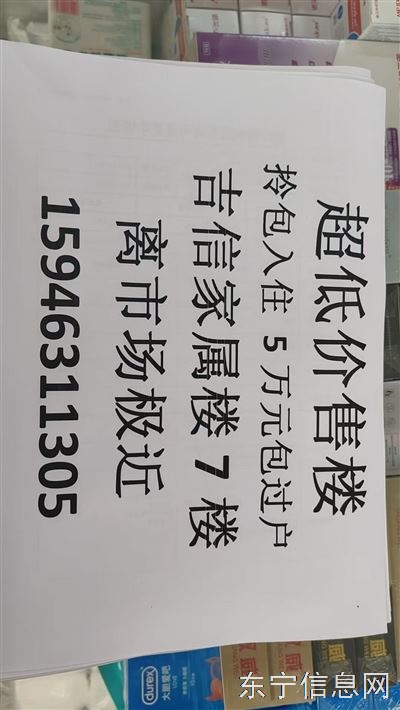 超低价售楼
拎包入住 5万元包过户
吉信家属楼7楼
离市场极近
15946311305
durex
大胆爱吧
LOVE
东宁信息网